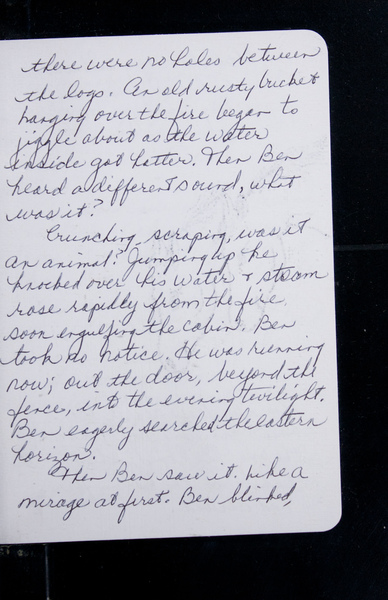 there were no holes between
the logs. An old rusty bucket
hanging over the fire began to
jiggle about as the water
inside got hotter. Then Ben
heard a different sound, what
was it?
Crunching, scraping, was it
an animal? Jumping up he
knocked over his water & steam
rose rapidly from the fire,
soon engulfing the cabin. Ben
took no notice. He was running
now; out the door, beyond the
fence, into the evening twilight.
Ben eagerly searched the eastern
horizon.
Then Ben saw it. Like a
mirage at first. Ben blinked,